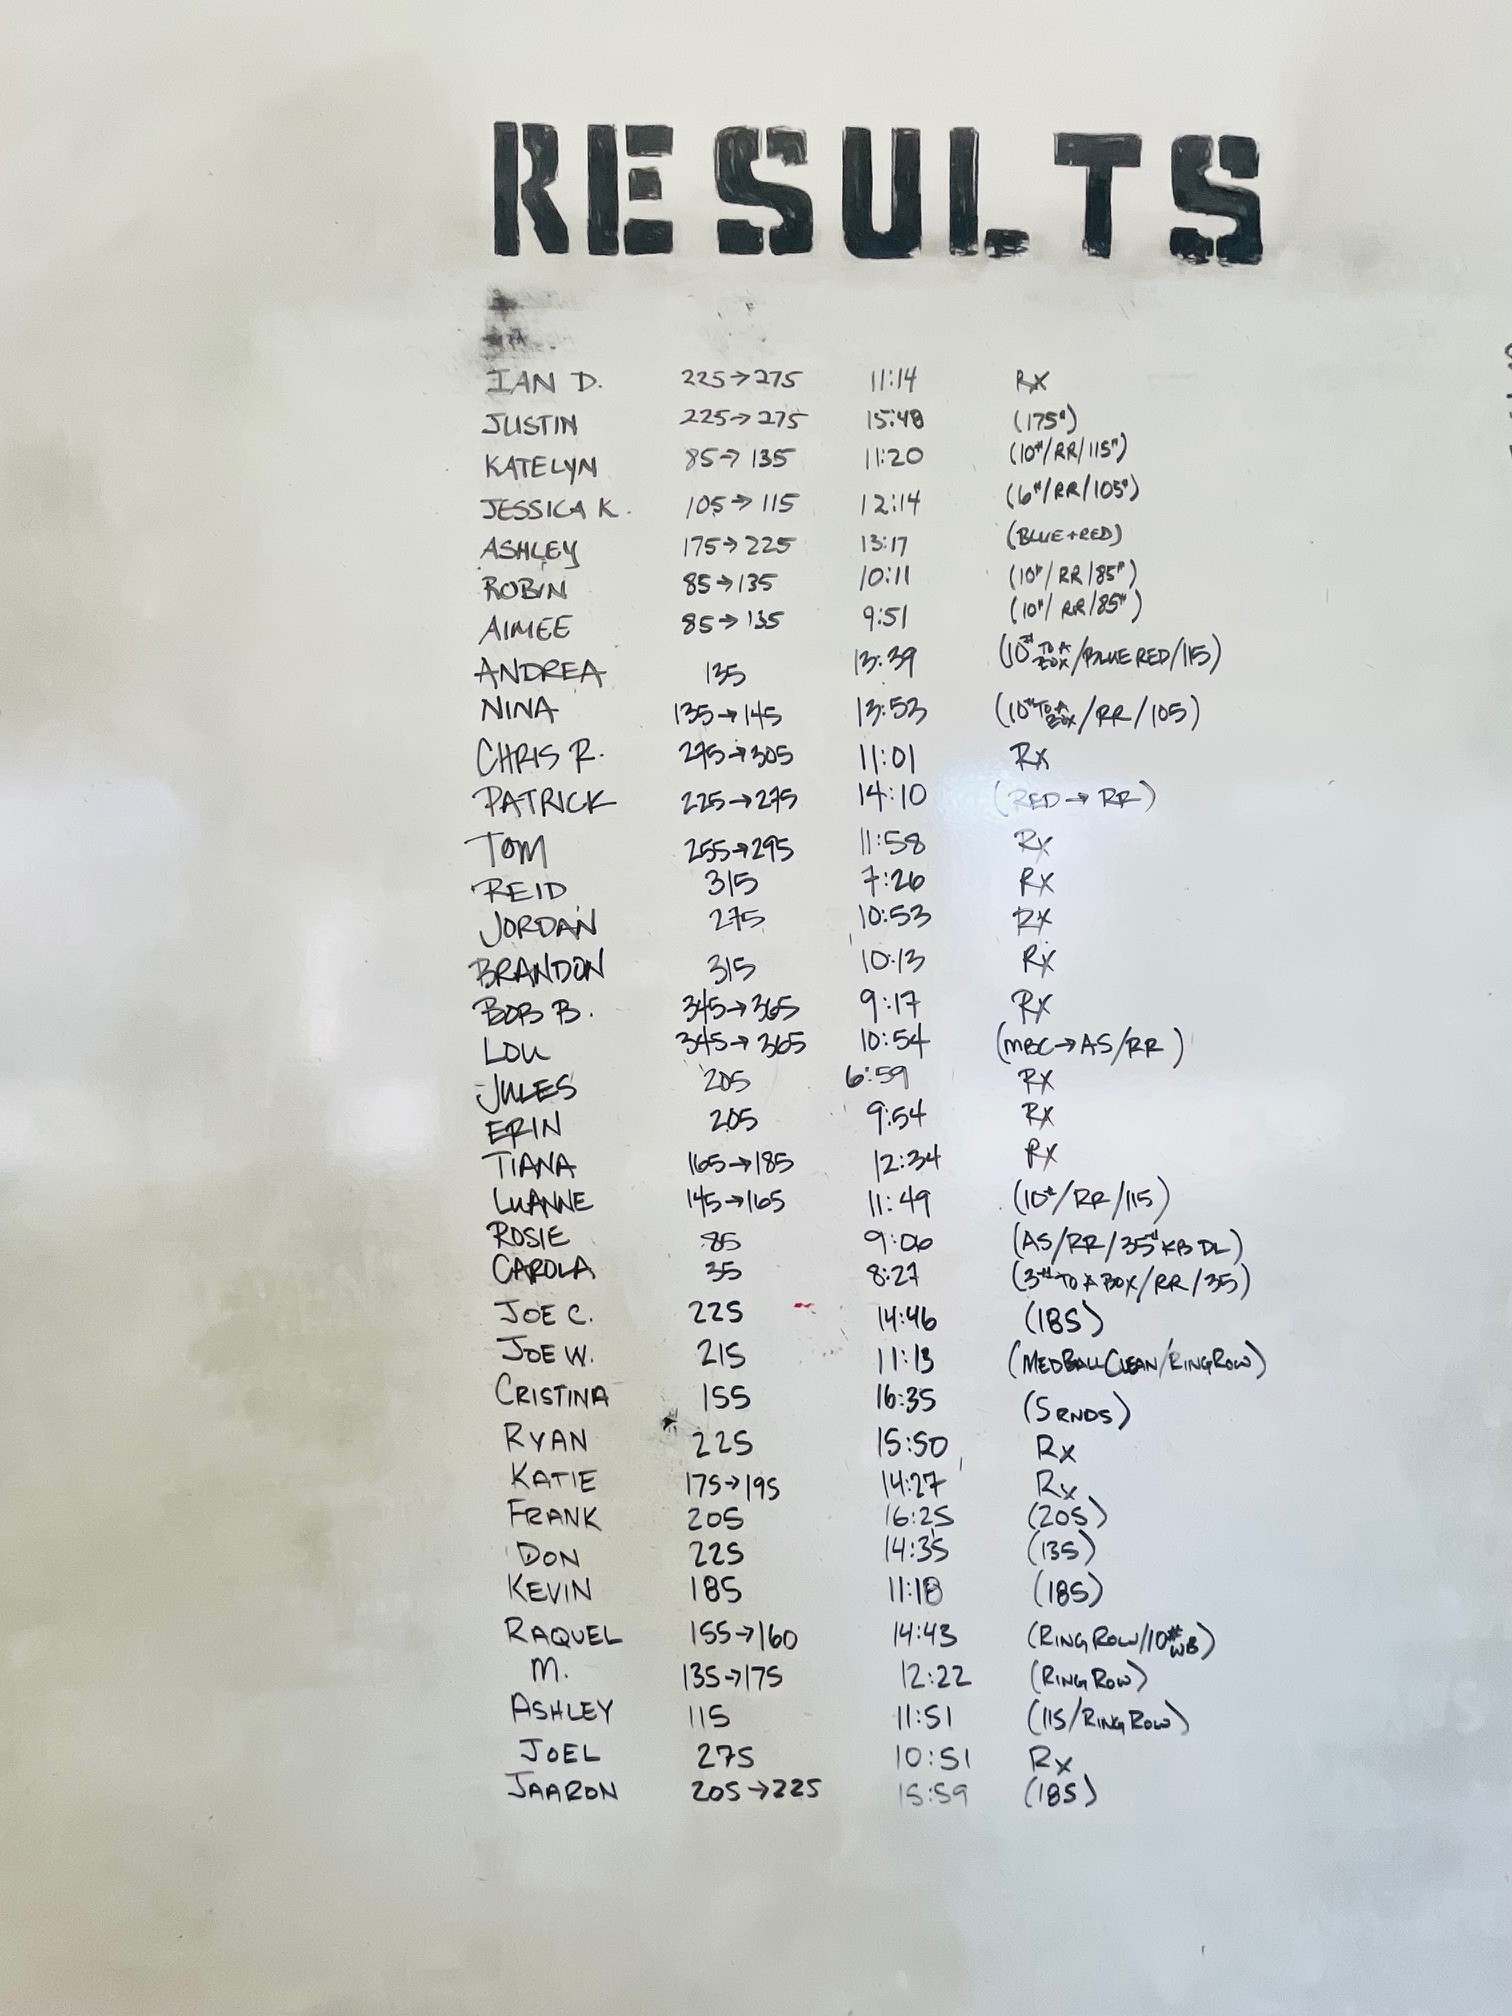 RESULTS
IAN D. 225→275 11:14 RX
JUSTIN 225→275 15:48 (175#)
KATELYN 85→135 11:20 (10#/RR/115#)
JESSICA K. 105→115 12:14 (6#/RR/105#)
ASHLEY 175→225 13:17 (BLUE+RED)
ROBIN 85→135 10:11 (10#/RR/85#)
AIMEE 85→135 9:51 (10#/RR/85#)
ANDREA 135 13:39 (10# TO A BOX/BLUE RED/115)
NINA 135→145 13:53 (10# TO A BOX/RR/105)
CHRIS R. 275→305 11:01 RX
PATRICK 225→275 14:10 (RED→RR)
TOM 255→295 11:58 RX
REID 315 7:26 RX
JORDAN 275 10:53 RX
BRANDON 315 10:13 RX
BOB B. 345→365 9:17 RX
LOU 345→365 10:54 (MBC→AS/RR)
JULES 205 6:59 RX
ERIN 205 9:54 RX
TIANA 165→185 12:34 RX
LUANNE 145→165 11:49 (10#/RR/115)
ROSIE 85 9:06 (AS/RR/35# KB DL)
CAROLA 35 8:27 (3# TO A BOX/RR/35)
JOE C. 225 14:46 (185)
JOE W. 215 11:13 (MEDBALL CLEAN/RING ROW)
CRISTINA 155 16:35 (5 RNDS)
RYAN 225 15:50 Rx
KATIE 175→195 14:27 Rx
FRANK 205 16:25 (205)
DON 225 14:35 (135)
KEVIN 185 11:18 (185)
RAQUEL 155→160 14:43 (RING ROW/10# WB)
M. 135→175 12:22 (RING ROW)
ASHLEY 115 11:51 (115/RING ROW)
JOEL 275 10:51 Rx
JAARON 205→225 15:59 (185)